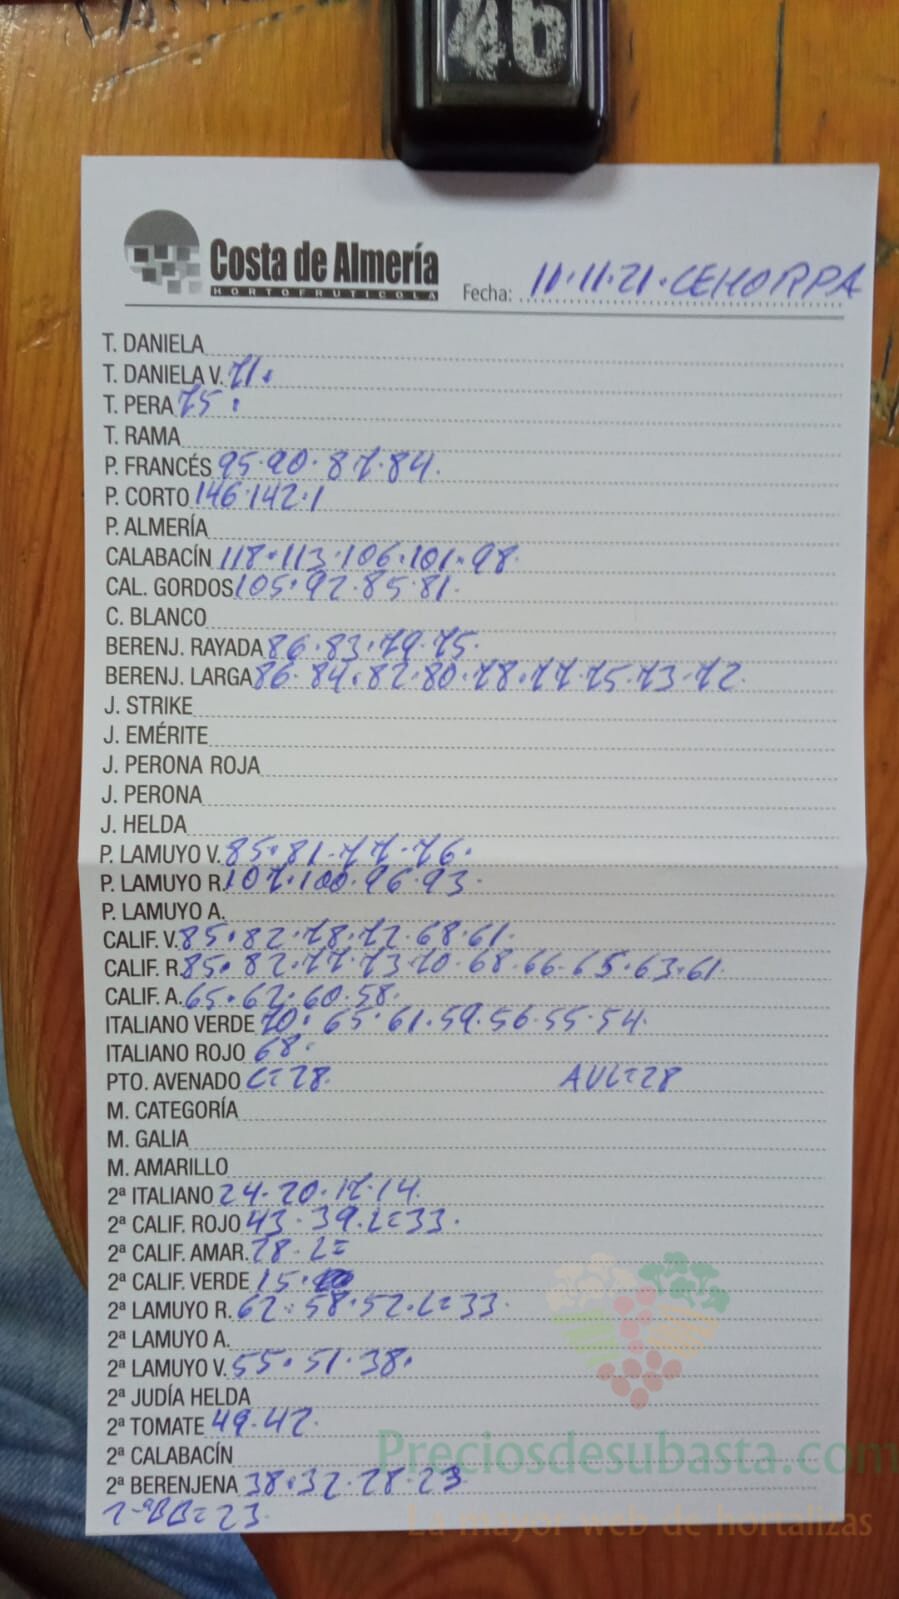 46
Costa de Almería
HORTOFRUTICOLA
Fecha: 11·11·21·CEHORPA
T. DANIELA
T. DANIELA V. 71·
T. PERA 75·
T. RAMA
P. FRANCÉS 95·90·87·84·
P. CORTO 146·142·1
P. ALMERÍA
CALABACÍN 118·113·106·101·98·
CAL. GORDOS 105·92·85·81·
C. BLANCO
BERENJ. RAYADA 86·83·79·75·
BERENJ. LARGA 86·84·82·80·78·77·75·73·72·
J. STRIKE
J. EMÉRITE
J. PERONA ROJA
J. PERONA
J. HELDA
P. LAMUYO V. 85·81·77·76·
P. LAMUYO R. 107·100·96·93·
P. LAMUYO A.
CALIF. V. 85·82·78·72·68·61·
CALIF. R. 85·82·77·73·70·68·66·65·63·61·
CALIF. A. 65·62·60·58·
ITALIANO VERDE 70·65·61·59·56·55·54·
ITALIANO ROJO 68·
PTO. AVENADO C=28· AVL=28
M. CATEGORÍA
M. GALIA
M. AMARILLO
2ª ITALIANO 24·20·17·14·
2ª CALIF. ROJO 43·39·L=33·
2ª CALIF. AMAR. 28·L=
2ª CALIF. VERDE 15·
2ª LAMUYO R. 62·58·52·L=33·
2ª LAMUYO A.
2ª LAMUYO V. 55·51·38·
2ª JUDÍA HELDA
2ª TOMATE 49·42·
2ª CALABACÍN
2ª BERENJENA 38·32·28·23
2ªBB=23·
Preciosdesubasta.com
La mayor web de hortalizas